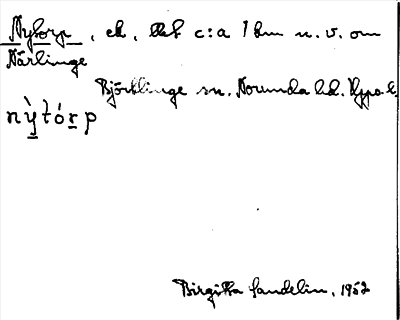 Nytorp, ek, c:a 1 km n.v. om
Närlinge
Björklinge sn. Norunda hd. Upps. l.
nỳtórp
Birgitta Sandelin, 1952